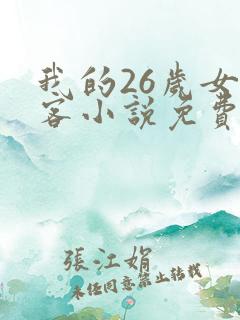 我的26歲女
客小說免費
張江娟
未經同意禁止轉載